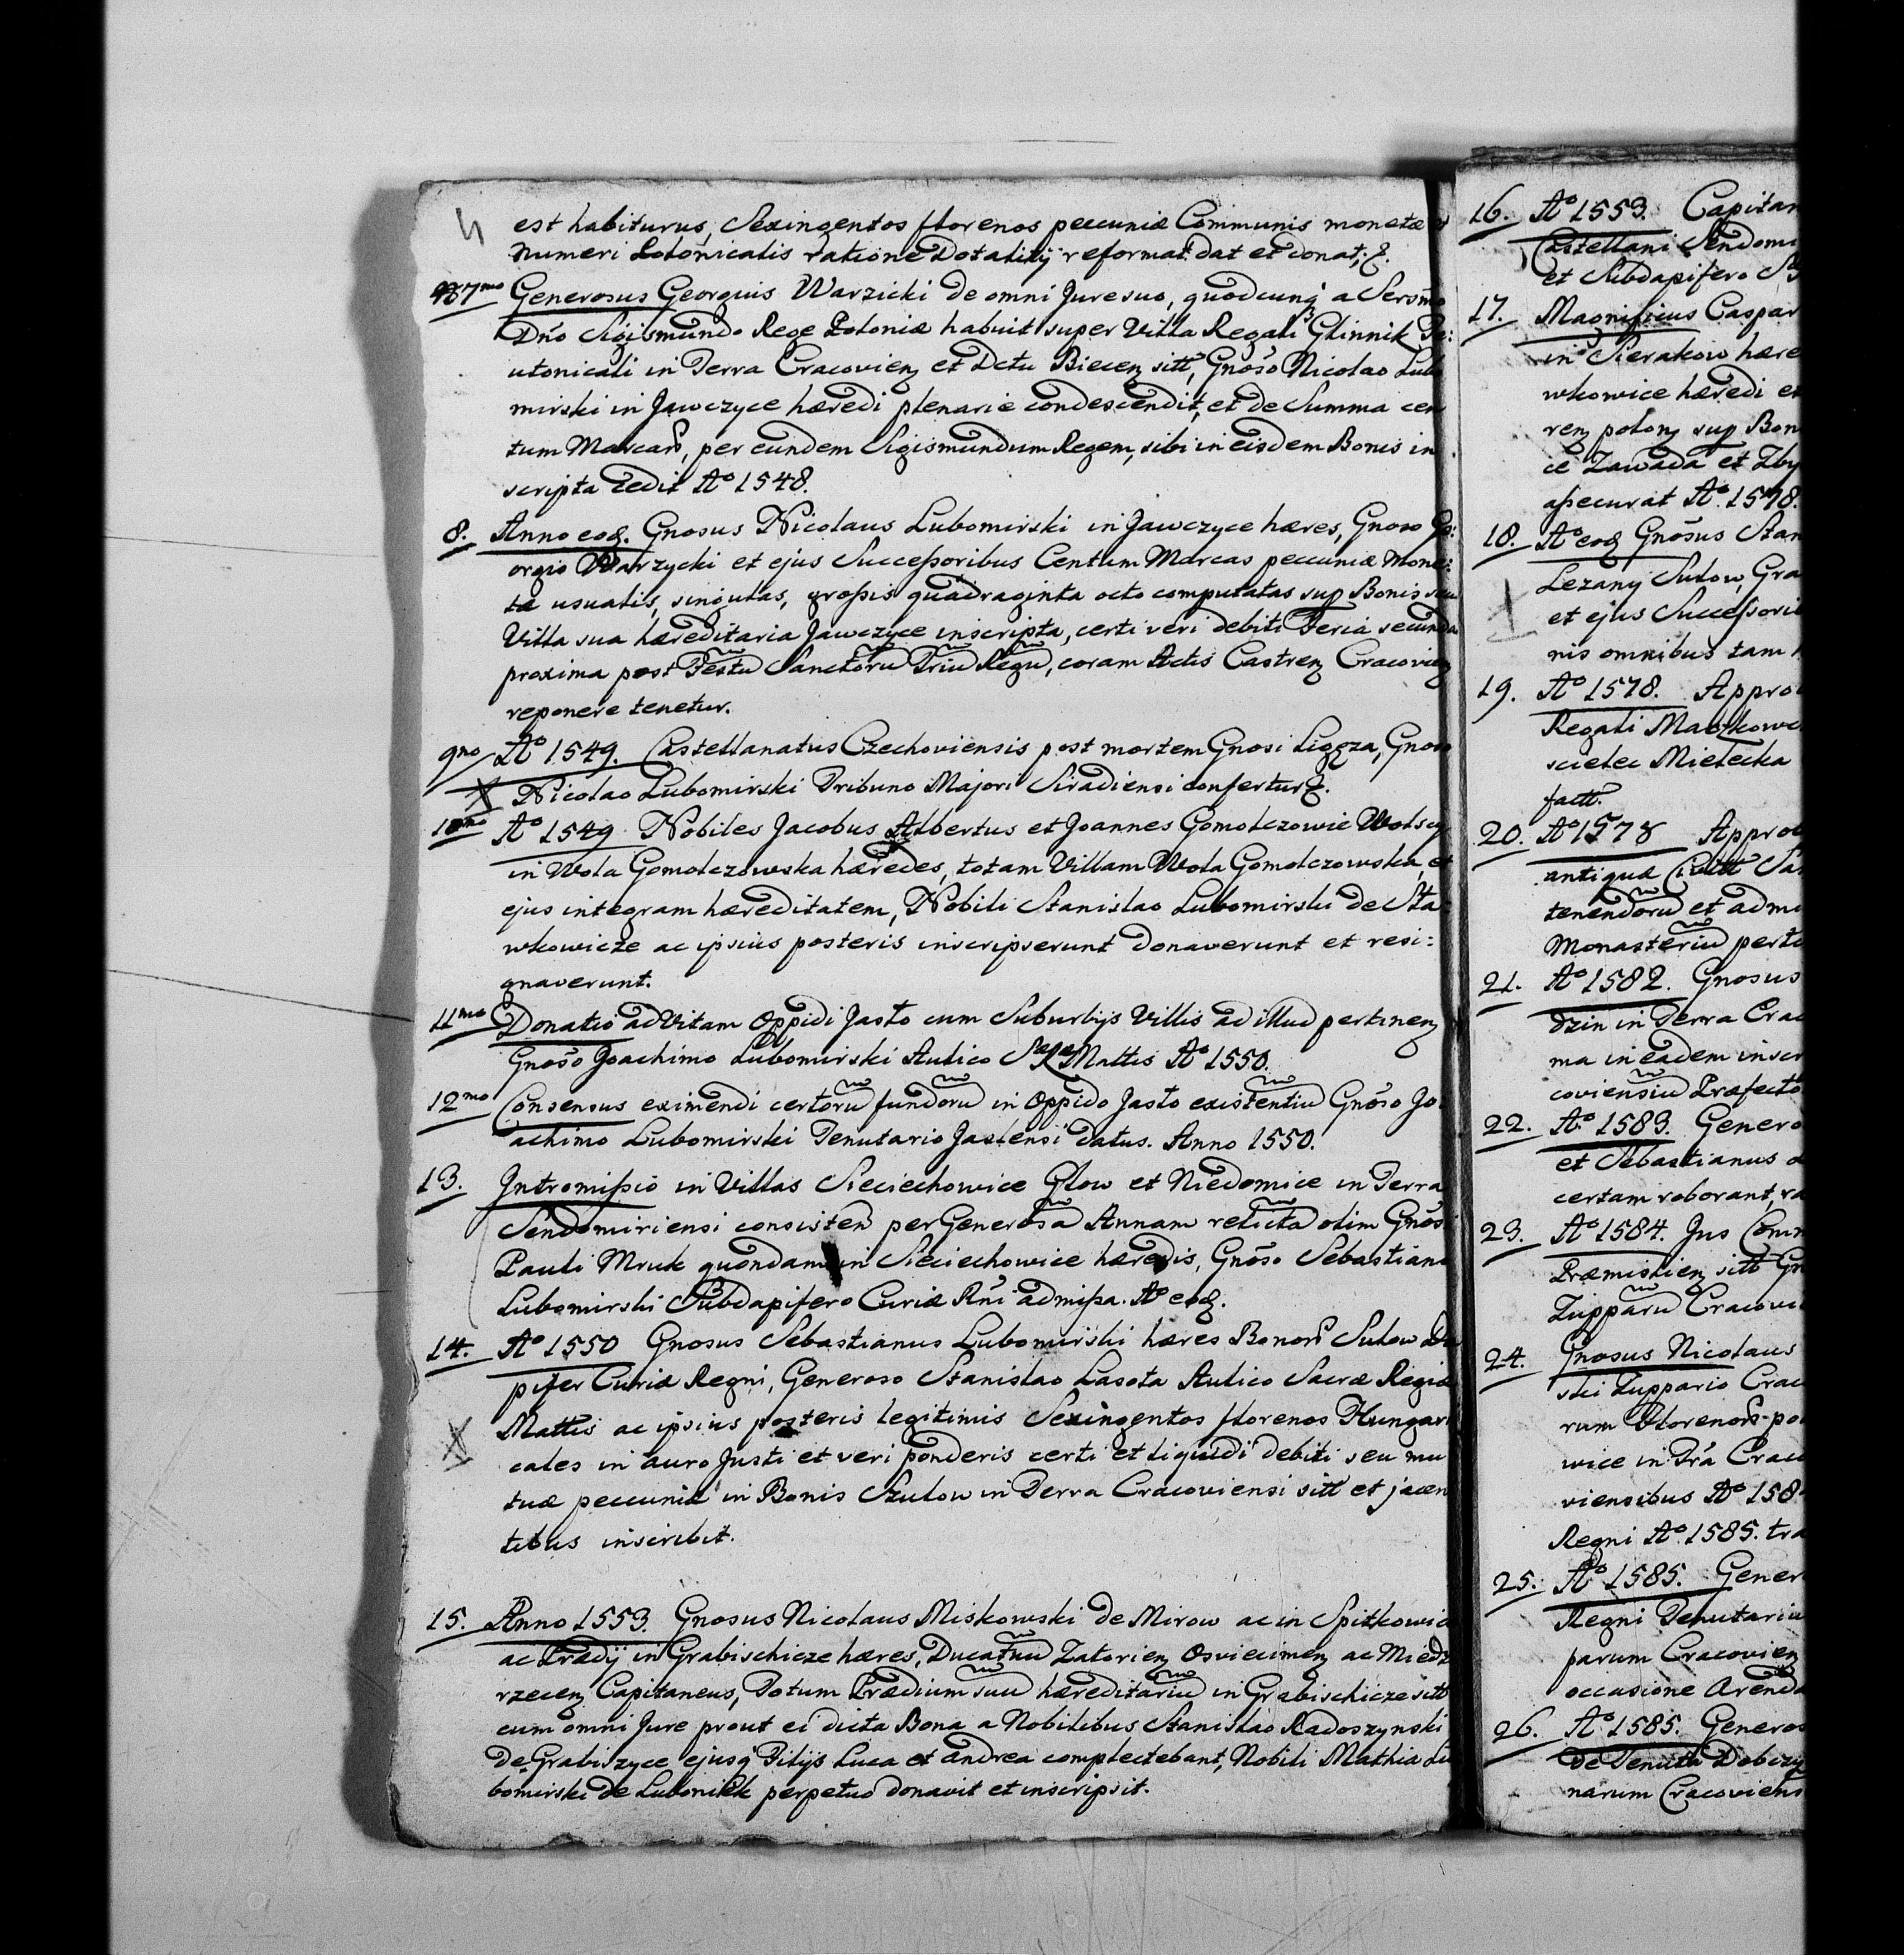 est habiturus, Sexingentos florenos peccuniæ Communis monetæ
Numeri Polonicalis ratione Dotalitij reformat dat et donat, &.
7mo Generosus Georgius Warzicki de omni Jure suo, quodcunq a Sersmo
Dno Sigismundo Rege Poloniæ habuit super Villa Regali Glinnik Te:
utonicali in Terra Cracovien et Dctu Biecen sitt, Gnoso Nicolao Lubo
mirski in Jawczyce hæredi plenarie condescendit, et de Summa cen
tum Marcar, per eundem Sigismundum Regem, sibi in eisdem Bonis in
scripta cedit Ao 1548.
8. Anno eod. Gnosus Nicolaus Lubomirski in Jawczyce hæres, Gnoso Ge:
orgio Warzycki et ejus Successoribus Centum Marcas peccuniæ Mone:
tæ usualis, singulas, grossis quadraginta octo computatas sup Bonis seu
Villa sua hæreditaria Jawczyce inscripta, certi veri debiti Feria secunda
proxima post Festu Sanctoru Triu Regu, coram Actis Castren Cracovien
reponere tenetur.
9no Ao 1549. Castellanatus Czechoviensis post mortem Gnosi Ligęza, Gnoso
Nicolao Lubomirski Tribuno Majori Siradiensi confertur &.
10mo Ao 1549 Nobiles Jacobus Albertus et Joannes Gomolczowie Wolscy
in Wola Gomolczowska hæredes, totam Villam Wola Gomolczowska, et
ejus integram hæreditatem, Nobili Stanislao Lubomirski de Sta:
wkowicze ac ipsius posteris inscripserunt donaverunt et resi:
gnaverunt.
11mo Donatio ad Vitam Oppidi Jasło cum Suburbijs Villis ad illud pertinen
Gnoso Joachimo Lubomirski Aulico Mattis Ao 1550.
12mo Consensus eximendi certoru fundoru in Oppido Jasło existentiu Gnoso Jo
achimo Lubomirski Tenutario Jaslensi datus. Anno 1550.
13. Intromissio in Villas Sieciechowice Glow et Niedomice in Terra
Sendomiriensi consisten per Generosa Annam relicta olim Gnosi
Pauli Mruk quondam in Sieciechowice hæredis, Gnoso Sebastiano
Lubomirski Subdapifero Curiæ Rni admissa. Ao eod.
14. Ao 1550 Gnosus Sebastianus Lubomirski hæres Bonor Sulow Da
pifer Curiæ Regni, Generoso Stanislao Lasota Aulico Sacræ Regiæ
Mattis ac ipsius posteris legitimis Sexingentos florenos Hungari
cales in auro Justi et veri ponderis certi et liquidi debiti seu mu
tuæ peccuniæ in Bonis Szulow in Terra Cracoviensi sitt et jacen
tibus inscribit.
15. Anno 1553. Gnosus Nicolaus Miskowski de Mirow ac in Spitkowic
ac Prædij in Grabischicze hæres, Ducatuu Zatorien Osviecimen ac Miedz
rzecen Capitaneus, Totum Prædium suu hæreditariu in Grabischicze sitt
cum omni Jure prout ei dicta Bona a Nobilibus Stanislao Radoszynski
De Grabiszyce ejusq Filijs Luca et Andrea complectebant, Nobili Mathia Lu
bomirski de Lubomirk perpetuo donavit et inscripsit.
16. Ao 1553. Capitan
Castellani Sendomi
et Subdapifero
17. Magnificus Caspar
in Sierakow hære
wkowice hæredi et
ren polon sup Bon
ce Zawada et Zby
assecurat Ao 1578.
18. Ao eod Gnosus Stan
Lezany Sulow, Gra
et ejus Successori
nis omnibus tam
19. Ao 1578. Appro
Regali Maczkowe
scielec Mielecka
factt.
20. Ao 1578 Approb
antiquæ
tenendoru et admi
Monasteriu perti
21. Ao 1582. Gnosus
dzin in Terra Crac
ma in eadem inscr
coviensiu Præfecto
22. Ao 1583. Genero
et Sebastianus
certam roborant, ra
23. Ao 1584. Jus Com
Præmislien sitt Gn
Zupparu Cracovi
24. Gnosus Nicolaus
ski Zuppario Crac
rum Florenor po
wice in Tra Crac
viensibus Ao 158
Regni Ao 1585. tra
25. Ao 1585. Gener
Regni Tenutariu
parum Cracovien
occasione Arenda
26. Ao 1585. Generos
de Tenuta Dobczy
narum Cracoviens